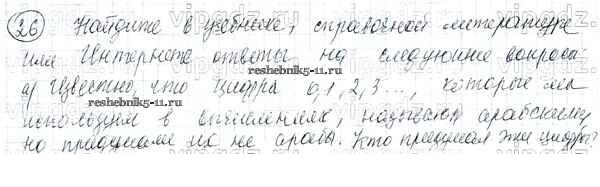 26 Найдите в учебнике, справочной литературе
или Интернете ответы на следующие вопросы
а) Известно, что цифра 0, 1, 2, 3 ..., которые мы
reshebnik5-11.ru
reshebnik5-11.ru
используем в вычислениях, называют арабскими
но придумали их не арабы. Кто придумал эти цифры?